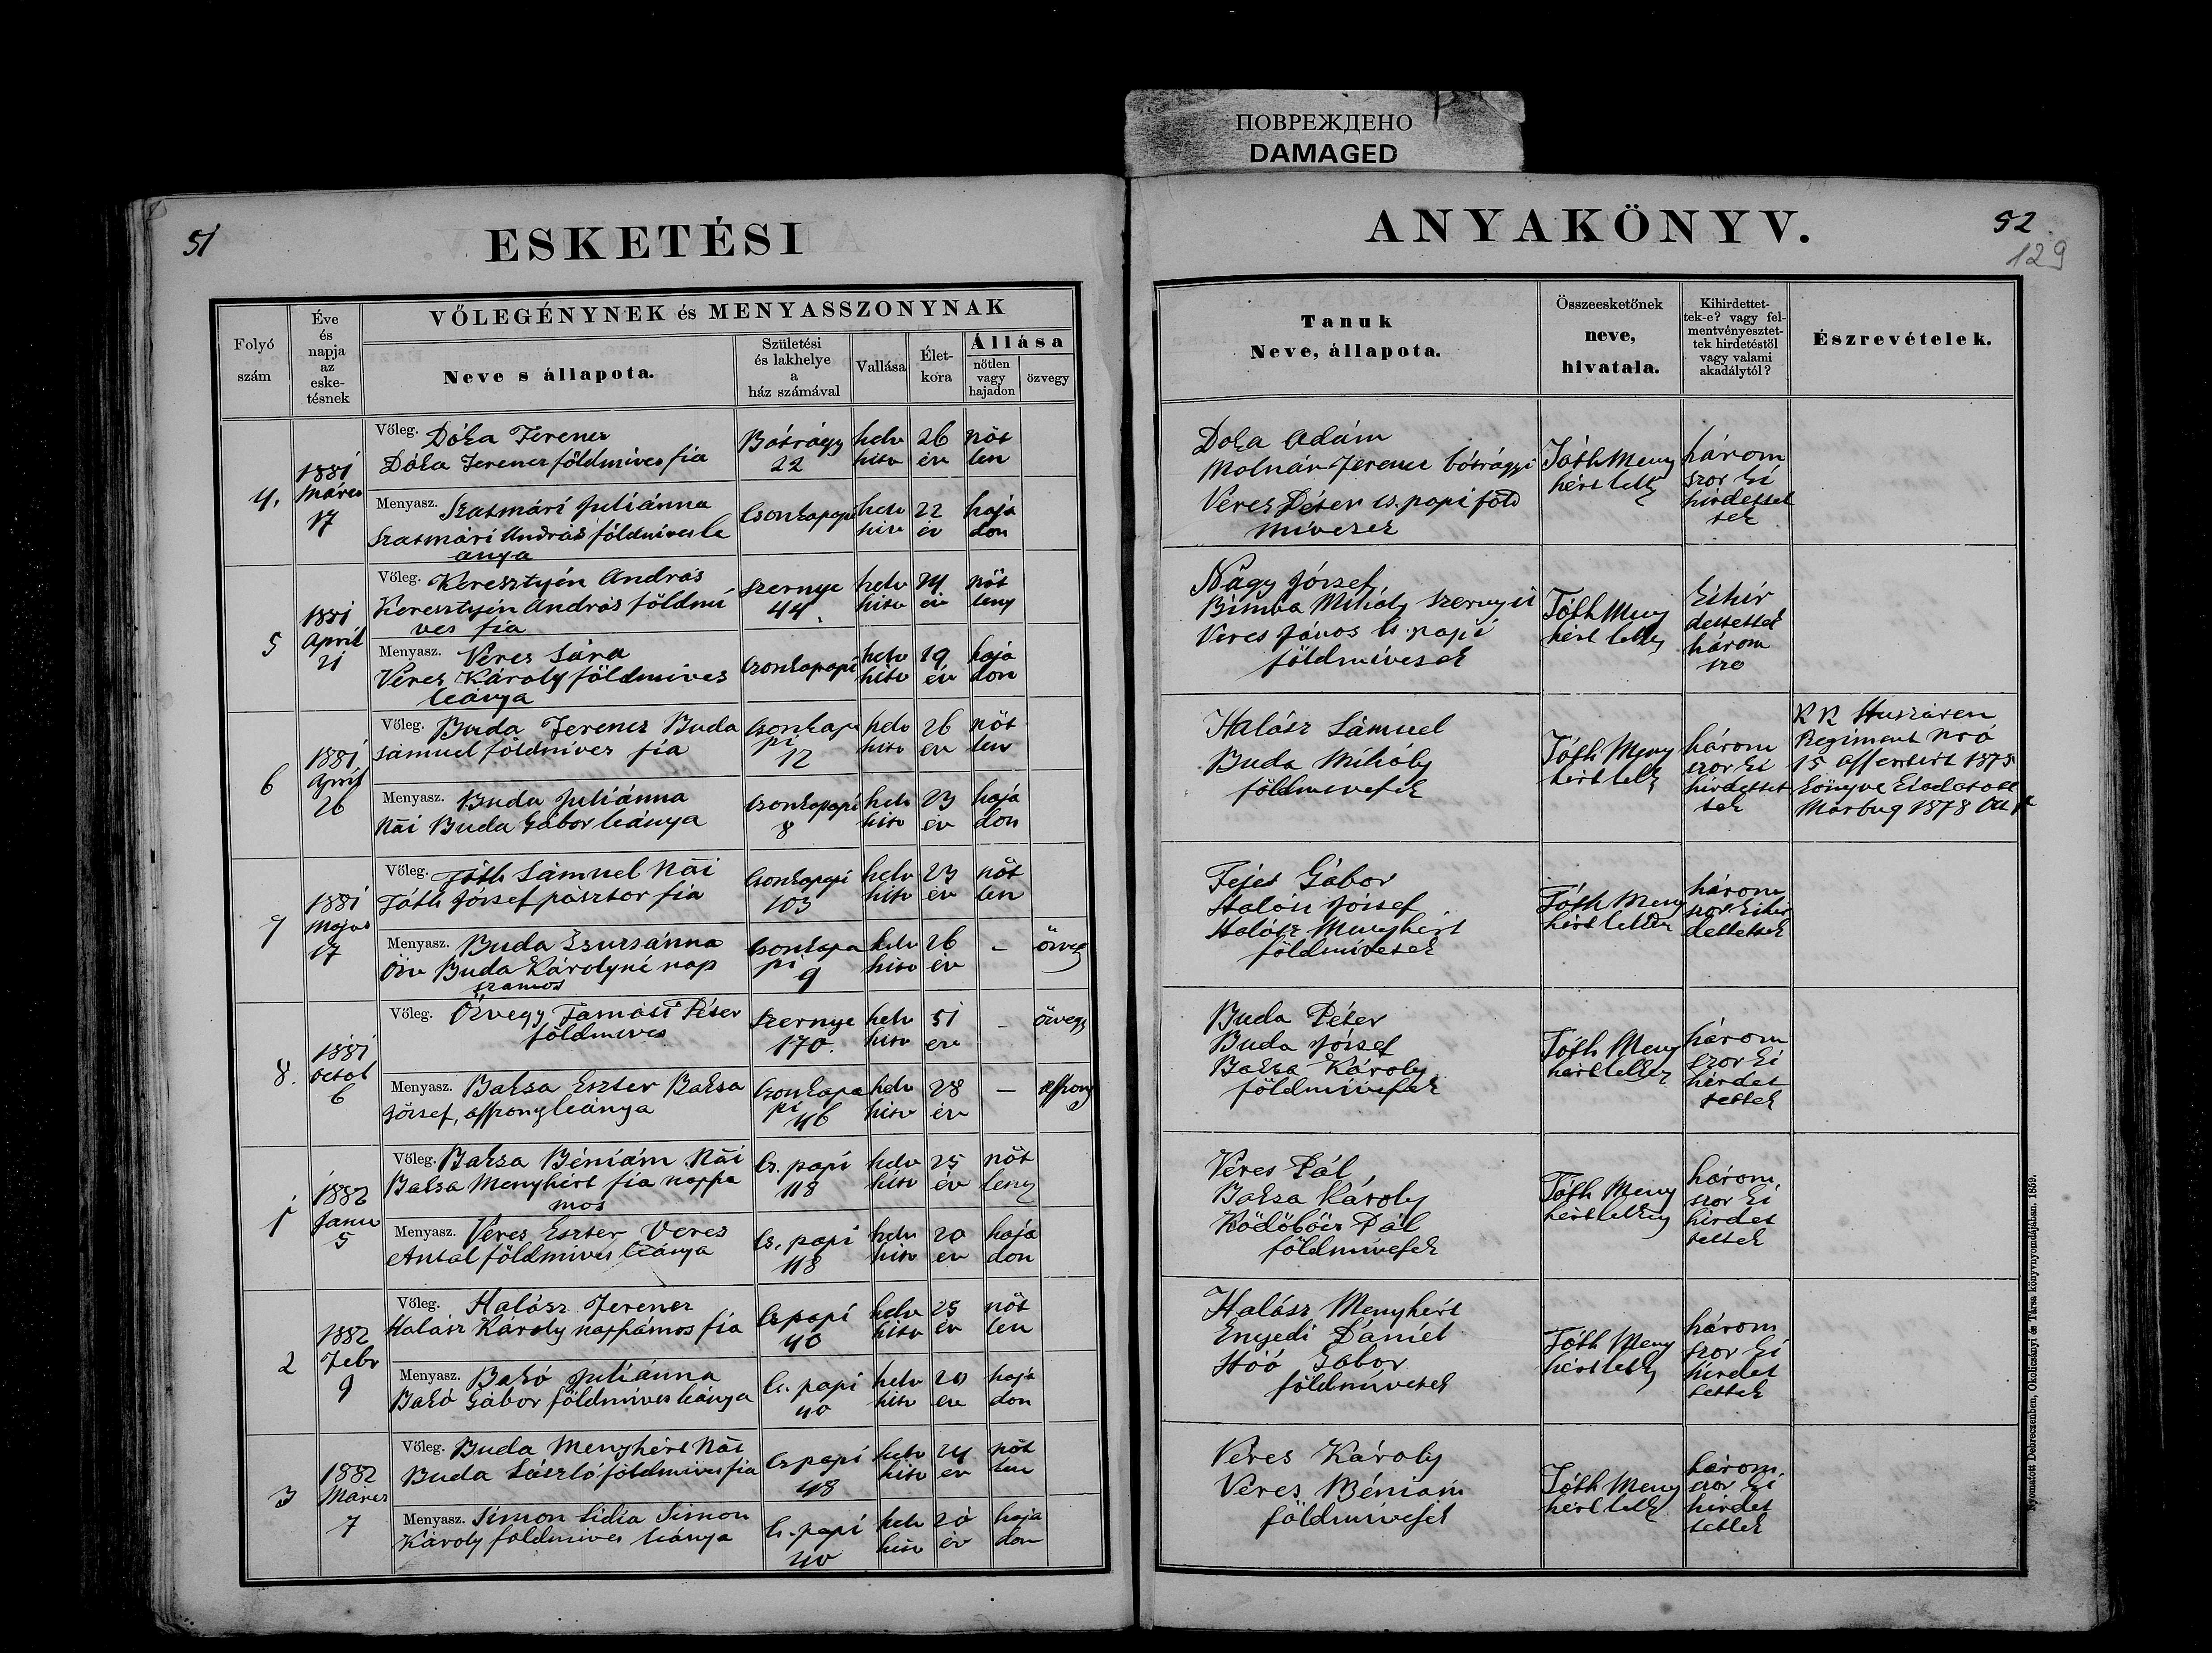 ПОВРЕЖДЕНО
DAMAGED
51
ESKETÉSI
ANYAKÖNYV.
52
129
Folyó
szám
Éve
és
napja
az
eske-
tésnek
VŐLEGÉNYNEK és MENYASSZONYNAK
Neve s állapota.
Születési
és lakhelye
a
ház számával
Vallása
Élet-
kora
Állása
nőtlen
vagy
hajadon
özvegy
Tanuk
Neve, állapota.
Összeesketőnek
neve,
hivatala.
Kihirdettet-
tek-e? vagy fel-
mentvényesztet-
tek hirdetéstől
vagy valami
akadálytól?
Észrevételek.
4.
1881
Márcz
17
Vőleg. Dóka Ferencz
Dóka Ferencz földmives fia
Bátrágy
22
helv
hitv
26
év
nőt
len
Menyasz. Szatmári Juliánna
Szatmári András földmives le
ánya
Csonkapapi
helv
hitv
22
év
haja
don
Doka Adám
Molnár Ferencz bótrágyi
Veres Péter cs. papi föld
mivesek
Tóth Meny
hért
három
szor ki
hirdettet
tek
5
1881
April
21
Vőleg. Keresztyén András
Keresztyén András földmi
ves fia
Szernye
44
helv
hitv
24
év
nőt
leny
Menyasz. Veres Sára
Veres Károly földmives
leánya
Csonkapapi
helv
hitv
19
év
haja
don
Nagy József
Bimba Mihály szernyei
Veres János Cs. papi
földmivesek
Tóth Meny
hért
kihir
dettettek
három
szo
6
1881
April
26
Vőleg. Buda Ferencz Buda
Sámuel földmives fia
Csonkapa
pi
12
helv
hitv
26
év
nőt
len
Menyasz. Buda Juliánna
Nái Buda Gábor leánya
Csonkapapi
8
helv
hitv
23
év
haja
don
Halász Sámuel
Buda Mihály
földmivesek
Tóth Meny
hért
három
szor ki
hirdettet
tek
K K Huszaren
Regiment Nro
15 assentirt 1875
könyve kiadatott
Marbug 1878
7
1881
Május
17
Vőleg. Tóth Sámuel Nái
Tóth József pásztor fia
Csonkapapi
103
helv
hitv
23
év
nőt
len
Menyasz. Buda Zsuzsánna
Özv Buda Károlyné nap
szamos
Csonkapa
pi
9
helv
hitv
26
év
–
özveg
Fejes Gábor
Halász József
Halász Menyhért
földmivesek
Tóth Meny
hért
három
szor kihir
dettettek
8.
1881
octob
6
Vőleg. Özvegy Tamási Péter
földmives
Szernye
170.
helv
hitv
51
év
–
özvegy
Menyasz. Baksa Eszter Baksa
József, asszony leánya
Csonkapa
pi
46
helv
hitv
28
év
–
asszony
Buda Péter
Buda József
Baksa Károly
földmivesek
Tóth Meny
hért
három
szor ki
hirdet
tettek
1
1882
Janu
5
Vőleg. Baksa Béniám Nái
Baksa Menyhért fia napsza
mos
Cs. papi
118
helv
hitv
25
év
nőt
leny
Menyasz. Veres Eszter Veres
Antal földmives leánya
Cs. papi
118
helv
hitv
20
év
haja
don
Veres Pál
Baksa Károly
Ködöböcz Pál
földmivesek
Tóth Meny
hért
három
szor ki
hirdet
tettek
2
1882
Febr
9
Vőleg. Halász Ferencz
Halász Károly napszámos fia
Cs papi
40
helv
hitv
25
év
nőt
len
Menyasz. Bakó Juliánna
Bakó Gábor földmives leánya
Cs. papi
40
helv
hitv
20
év
haja
don
Halász Menyhért
Enyedi Dániel
Hóó Gábor
földmivesek
Tóth Meny
hért
három
szor ki
hirdet
tettek
3
1882
Márcz
7
Vőleg. Buda Menyhért Nái
Buda László földmives fia
Cs papi
48
helv
hitv
24
év
nőt
len
Menyasz. Simon Lidia Simon
Károly földmives leánya
Cs. papi
40
helv
hitv
20
év
haja
don
Veres Károly
Veres Béniám
földmivesek
Tóth Meny
hért
három
szor ki
hirdet
tettek
Nyomatott Debreczenben, Okolicsányi és Társa könyvnyomdájában. 1859.